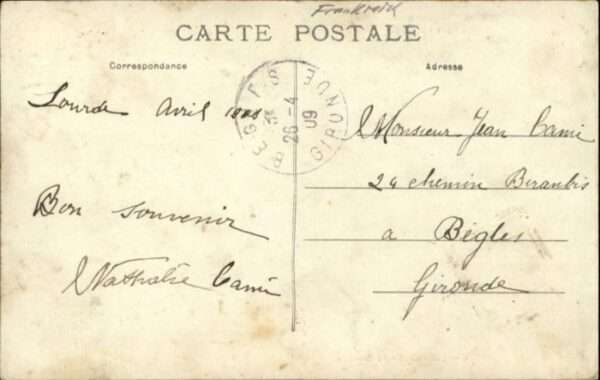 Frankreich
CARTE POSTALE
Correspondance
Adresse
BEGLES
GIRONDE
26-4
09
Lourde Avril
Bon souvenir
Nathalie Cami
Monsieur Jean Cami
24 chemin
a Bègles
Gironde